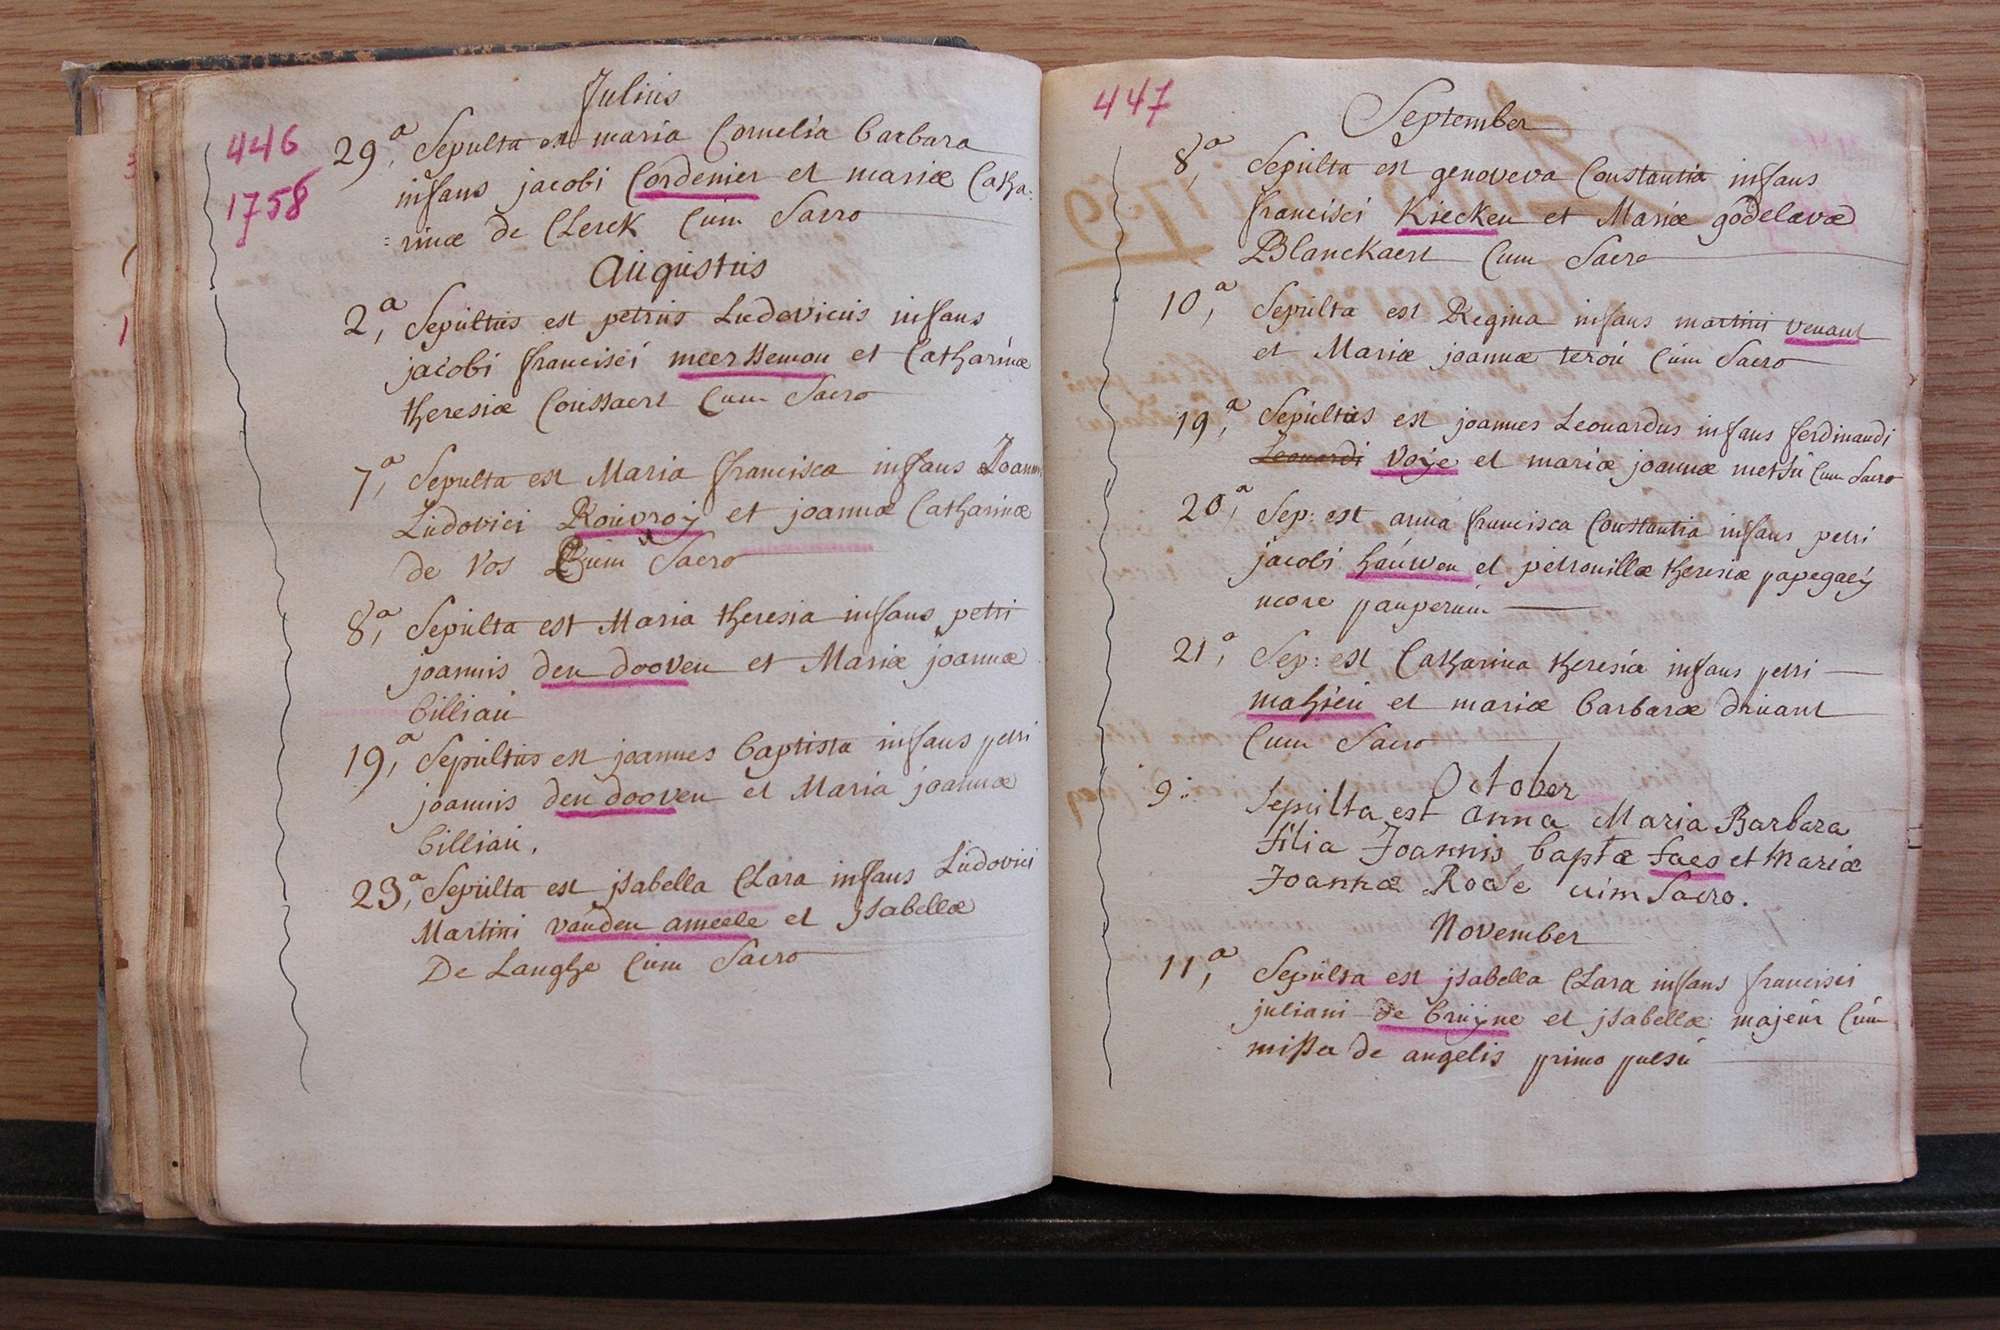 446
1758
Julius
29,a Sepulta est maria Cornelia barbara
infans jacobi Cordenier et mariæ Catha:
:rinæ de Clerck Cum Sacro
Augustus
2,a Sepultus est petrus Ludovicus infans
jacobi francisci meersseman et Catharinæ
theresiæ Coussaert Cum Sacro
7,a Sepulta est Maria francisca infans Joannis
Ludovici Rouvroij et joannæ Catharinæ
de Vos Cum Sacro
8,a Sepulta est Maria theresia infans petri
joannis den dooven et Mariæ joannæ
billiau
19,a Sepultus est joannes baptista infans petri
joannis den dooven et Maria joannæ
billiau.
23,a Sepulta est jsabella Clara infans Ludovici
Martini vanden ameele et jsabellæ
De Langhe Cum Sacro
447
September
8,a Sepulta est genoveva Constantia infans
francisci Kiecken et Mariæ godelævæ
Blanckaert Cum Sacro
10,a Sepulta est Regina infans martini venant
et Mariæ joannæ terou Cum Sacro
19,a Sepultus est joannes Leonardus infans ferdinandi
Leonardi Voije et mariæ joannæ metsu Cum Sacro
20,a Sep: est anna francisca Constantia infans petri
jacobi hauwen et petronillæ theresiæ papegaeij
more pauperum
21,a Sep: est Catharina theresia infans petri
mahieu et mariæ barbaræ druant
Cum Sacro
October
9: Sepulta est anna Maria Barbara
filia Joannis baptæ faes et Mariæ
Joannæ Rode cum Sacro.
November
11,a Sepulta est jsabella Clara infans francisci
juliani de bruijne et jsabellæ majeur Cum
missa de angelis primo pulsu